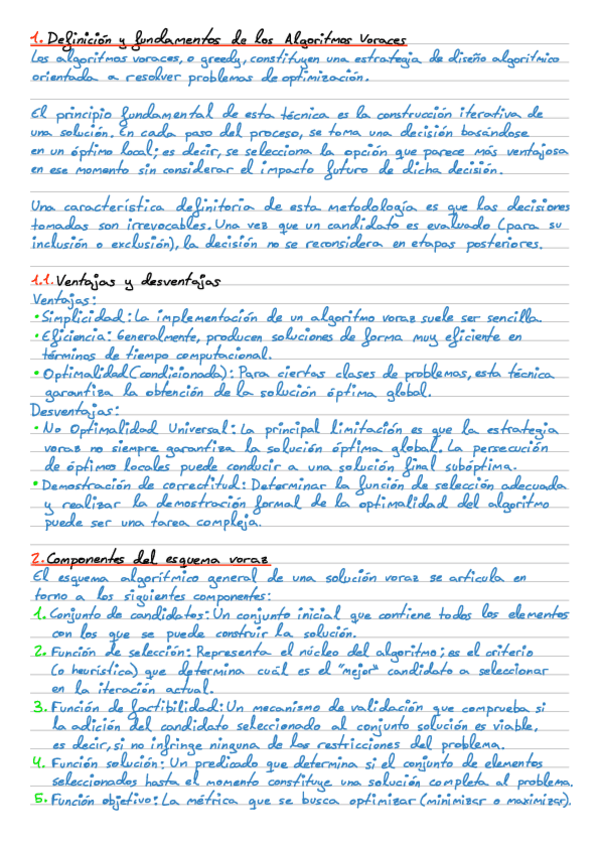 1. Definición y fundamentos de los Algoritmos Voraces
Los algoritmos voraces, o greedy, constituyen una estrategia de diseño algorítmico
orientada a resolver problemas de optimización.
El principio fundamental de esta técnica es la construcción iterativa de
una solución. En cada paso del proceso, se toma una decisión basándose
en un óptimo local; es decir, se selecciona la opción que parece más ventajosa
en ese momento sin considerar el impacto futuro de dicha decisión.
Una característica definitoria de esta metodología es que las decisiones
tomadas son irrevocables. Una vez que un candidato es evaluado (para su
inclusión o exclusión), la decisión no se reconsidera en etapas posteriores.
1.1. Ventajas y desventajas
Ventajas:
• Simplicidad: La implementación de un algoritmo voraz suele ser sencilla.
• Eficiencia: Generalmente, producen soluciones de forma muy eficiente en
términos de tiempo computacional.
• Optimalidad (condicionada): Para ciertas clases de problemas, esta técnica
garantiza la obtención de la solución óptima global.
Desventajas:
• No Optimalidad Universal: La principal limitación es que la estrategia
voraz no siempre garantiza la solución óptima global. La persecución
de óptimos locales puede conducir a una solución final subóptima.
• Demostración de correctitud: Determinar la función de selección adecuada
y realizar la demostración formal de la optimalidad del algoritmo
puede ser una tarea compleja.
2. Componentes del esquema voraz
El esquema algorítmico general de una solución voraz se articula en
torno a los siguientes componentes:
1. Conjunto de candidatos: Un conjunto inicial que contiene todos los elementos
con los que se puede construir la solución.
2. Función de selección: Representa el núcleo del algoritmo; es el criterio
(o heurística) que determina cuál es el "mejor" candidato a seleccionar
en la iteración actual.
3. Función de factibilidad: Un mecanismo de validación que comprueba si
la adición del candidato seleccionado al conjunto solución es viable,
es decir, si no infringe ninguna de las restricciones del problema.
4. Función solución: Un predicado que determina si el conjunto de elementos
seleccionados hasta el momento constituye una solución completa al problema.
5. Función objetivo: La métrica que se busca optimizar (minimizar o maximizar).